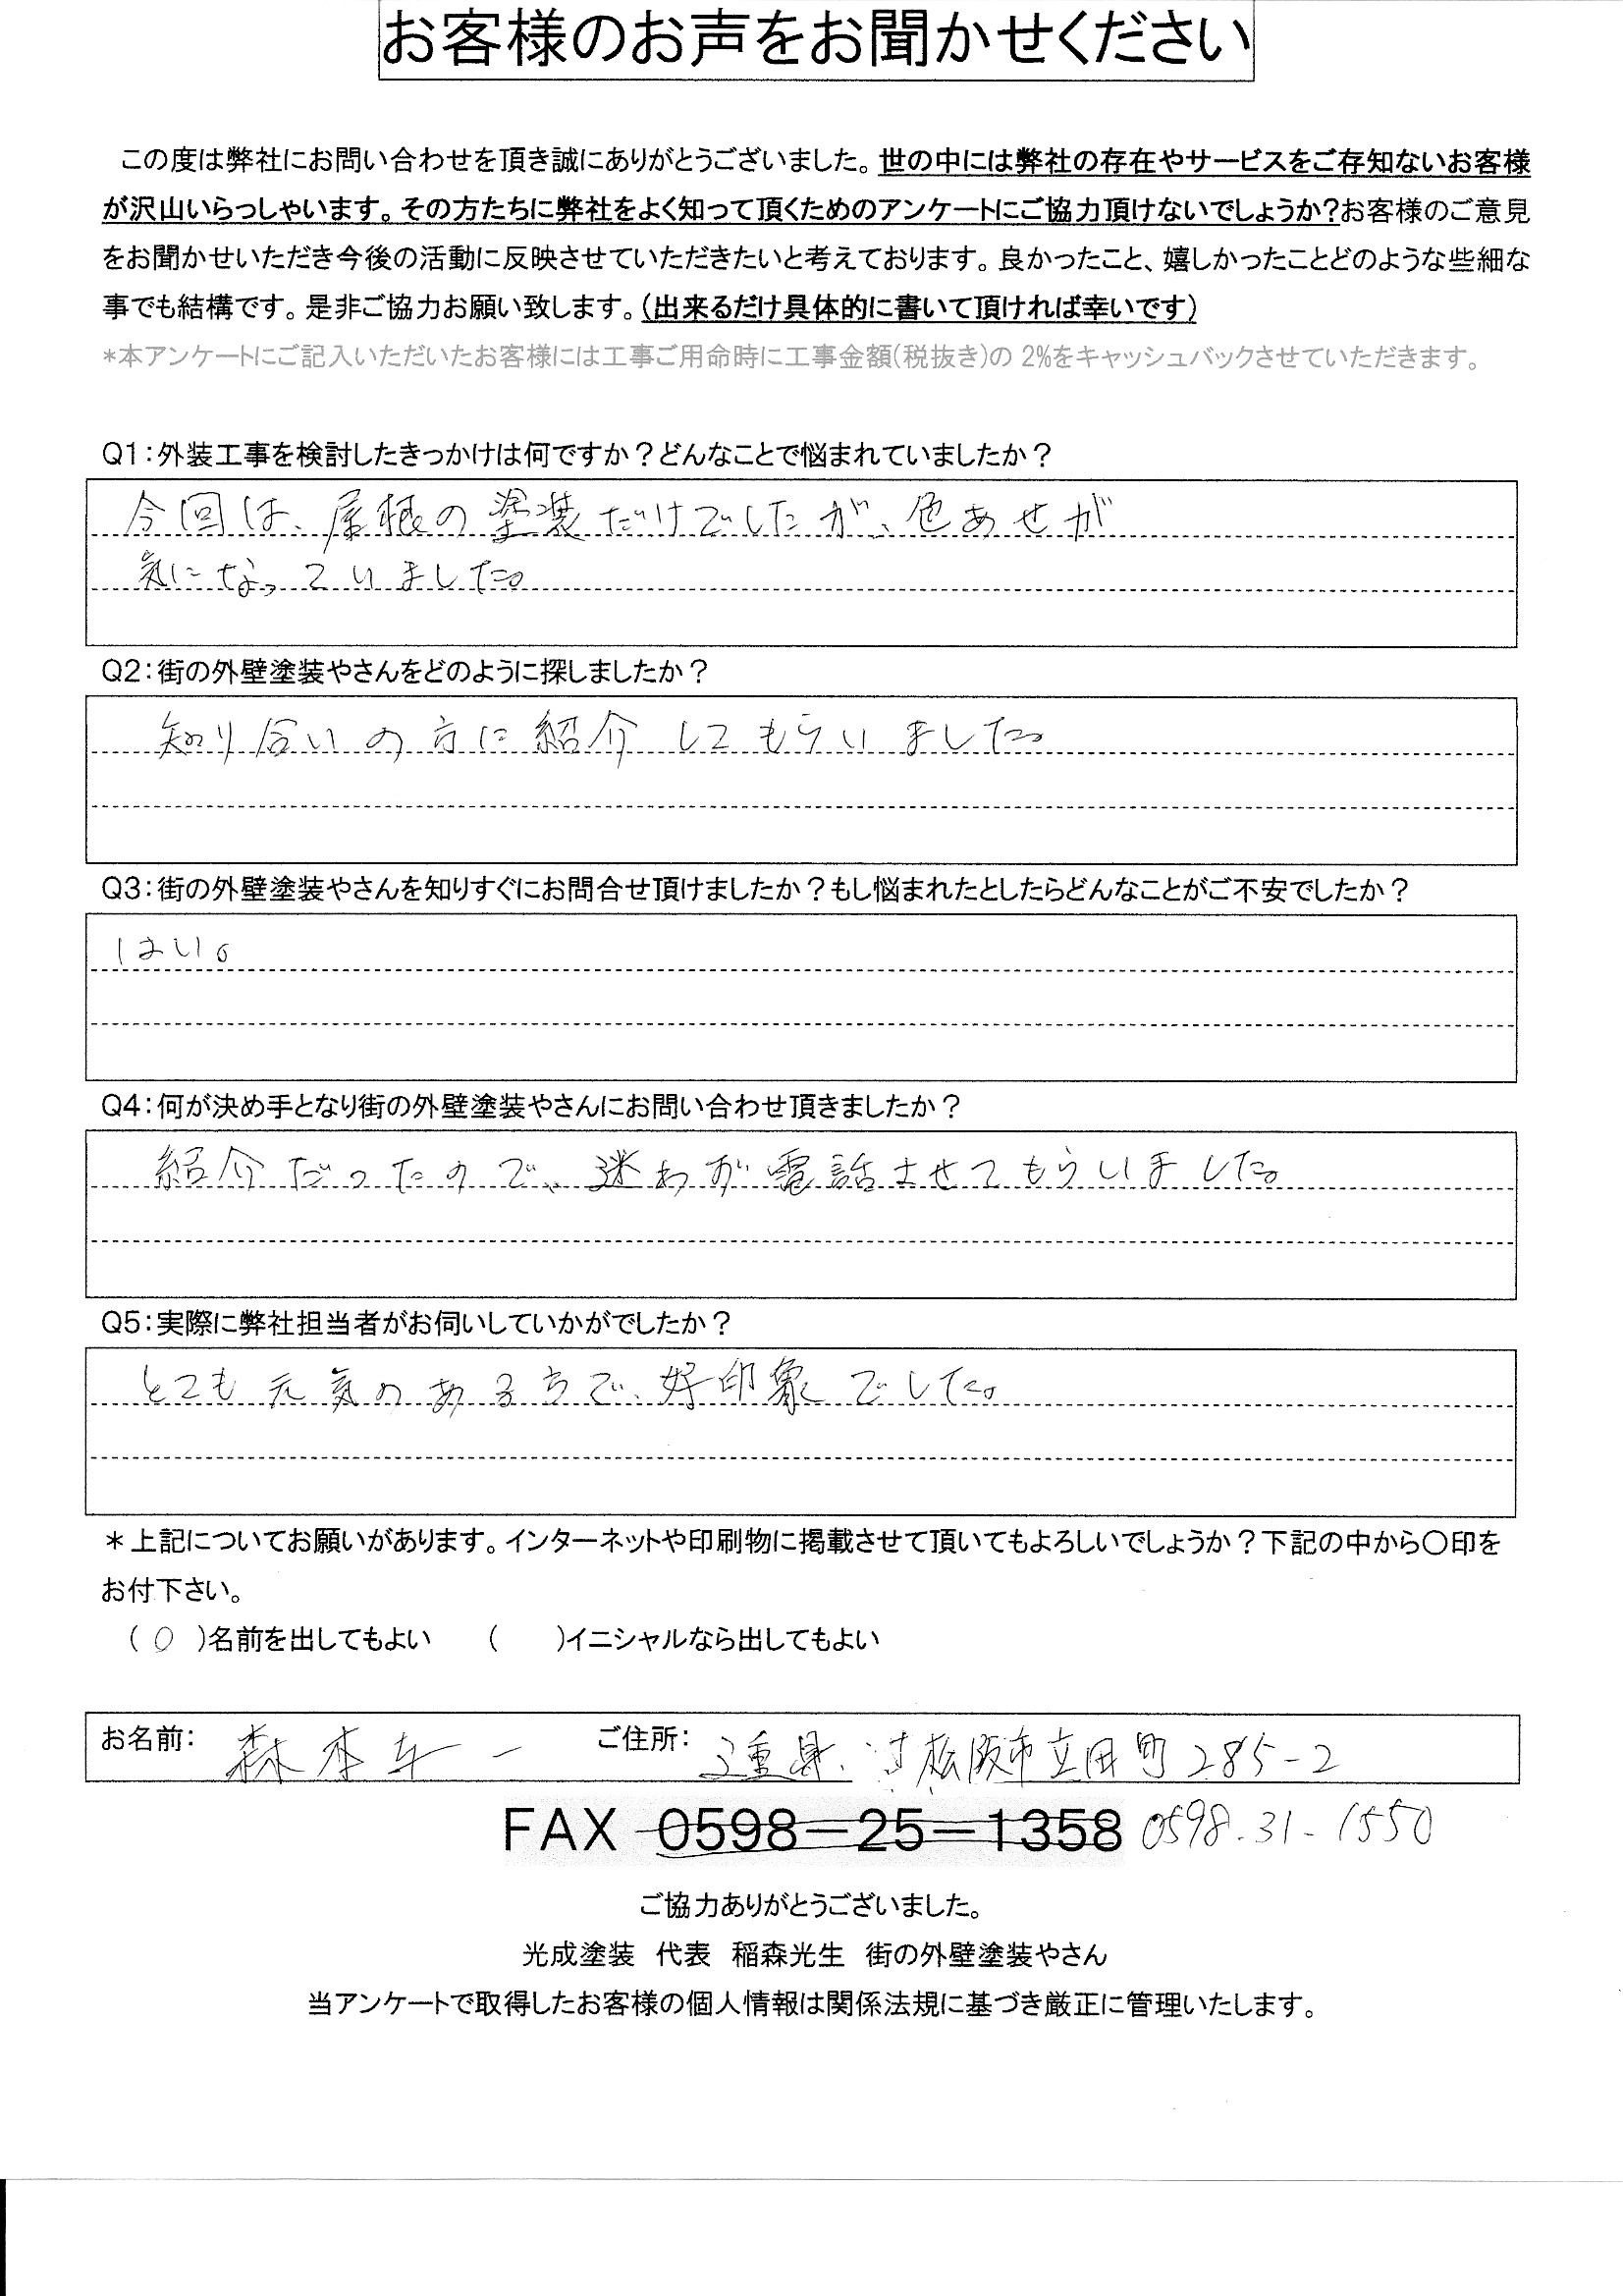 お客様のお声をお聞かせください
この度は弊社にお問い合わせを頂き誠にありがとうございました。世の中には弊社の存在やサービスをご存知ないお客様
が沢山いらっしゃいます。その方たちに弊社をよく知って頂くためのアンケートにご協力頂けないでしょうか?お客様のご意見
をお聞かせいただき今後の活動に反映させていただきたいと考えております。良かったこと、嬉しかったことどのような些細な
事でも結構です。是非ご協力お願い致します。(出来るだけ具体的に書いて頂ければ幸いです)
*本アンケートにご記入いただいたお客様には工事ご用命時に工事金額(税抜き)の 2%をキャッシュバックさせていただきます。
Q1:外装工事を検討したきっかけは何ですか?どんなことで悩まれていましたか?
今回は、屋根の塗装だけでしたが、色あせが
気になっていました。
Q2:街の外壁塗装やさんをどのように探しましたか?
知り合いの方に紹介してもらいました。
Q3:街の外壁塗装やさんを知りすぐにお問合せ頂けましたか?もし悩まれたとしたらどんなことがご不安でしたか?
はい。
Q4:何が決め手となり街の外壁塗装やさんにお問い合わせ頂きましたか?
紹介だったので、迷わず電話させてもらいました。
Q5:実際に弊社担当者がお伺いしていかがでしたか?
とても元気のある方で、好印象でした。
*上記についてお願いがあります。インターネットや印刷物に掲載させて頂いてもよろしいでしょうか?下記の中から〇印を
お付下さい。
(〇)名前を出してもよい ( )イニシャルなら出してもよい
お名前: 森本 一 ご住所: 三重県 松阪市立田町285-2
FAX 0598-25-1358 0598-31-1550
ご協力ありがとうございました。
光成塗装 代表 稲森光生 街の外壁塗装やさん
当アンケートで取得したお客様の個人情報は関係法規に基づき厳正に管理いたします。